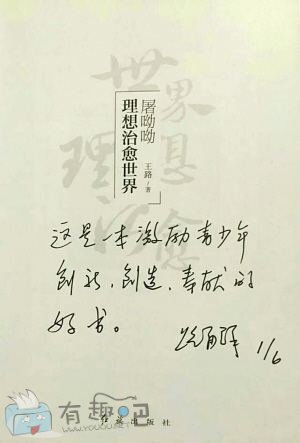 世界
理想
治愈
屠呦呦
理想治愈世界
王路/著
这是一本激励青少年
创新、创造、奉献的
好书。
1/6
出版社
有趣吧